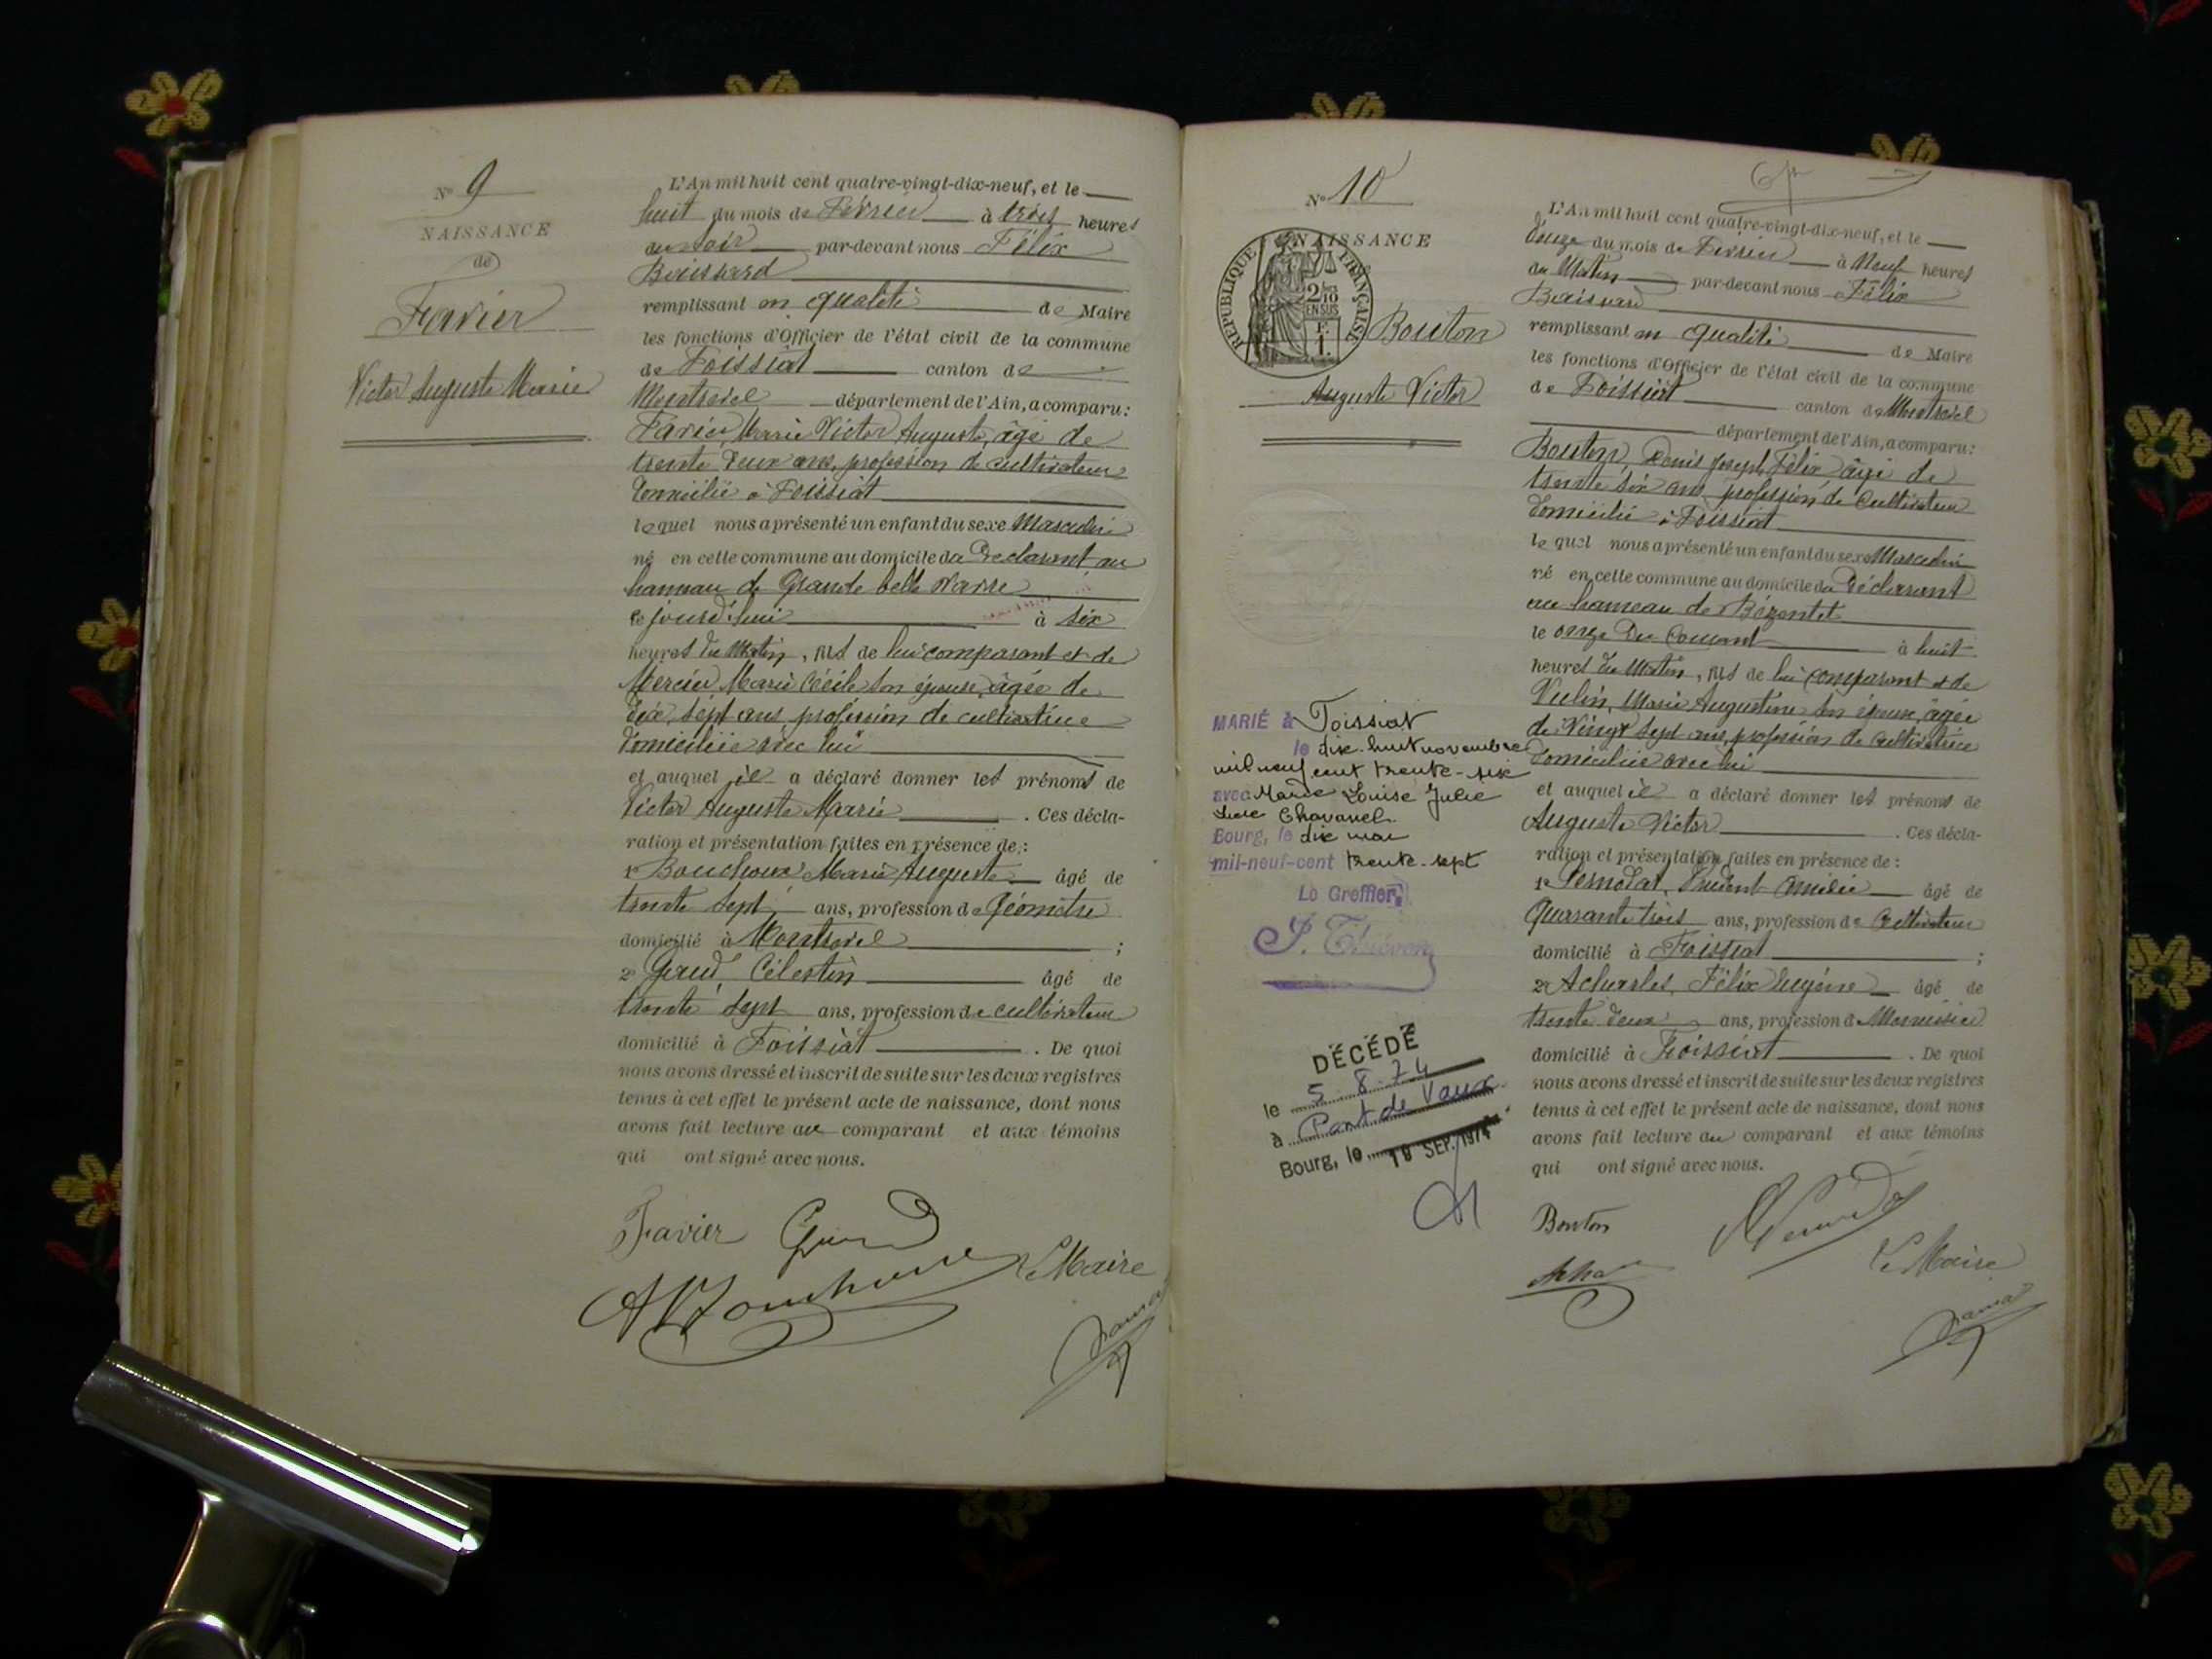 N° 9
NAISSANCE
de
Favier
Victor Auguste Marie
L'An mil huit cent quatre-vingt-dix-neuf, et le
huit du mois de Février à trois heures
du soir par-devant nous Félix
Boissard
remplissant en qualité de Maire
les fonctions d'Officier de l'état civil de la commune
de Foissiat canton de
Montrevel département de l'Ain, a comparu :
Favier, Marie Victor Auguste, âgé de
trente deux ans, profession de cultivateur
domicilié à Foissiat
lequel nous a présenté un enfant du sexe Masculin
né en cette commune au domicile du Déclarant au
hameau de Grande belle
ce jourd'hui à six
heures du Matin, fils de lui comparant et de
Mercier Marie Cécile son épouse, âgée de
dix sept ans, profession de cultivatrice
domiciliée avec lui
et auquel il a déclaré donner les prénoms de
Victor Auguste Marie . Ces décla-
ration et présentation faites en présence de :
1° Bouchoux Marie Auguste âgé de
trente sept ans, profession de Géomètre
domicilié à Montrevel ;
2° Célestin âgé de
trente sept ans, profession de cultivateur
domicilié à Foissiat . De quoi
nous avons dressé et inscrit de suite sur les deux registres
tenus à cet effet le présent acte de naissance, dont nous
avons fait lecture au comparant et aux témoins
qui ont signé avec nous.
Favier
Le Maire
N° 10
NAISSANCE
RÉPUBLIQUE FRANÇAISE
2/10
EN SUS
F.
1.
Bouton
Auguste Victor
MARIÉ à Foissiat
le dix-huit novembre
mil neuf cent trente-six
avec Marie Louise Julie
Chavanel.
Bourg, le dix mai
mil-neuf-cent trente-sept
Le Greffier,
DÉCÉDÉ
le 5.8.74
à Pont de Vaux
Bourg, le 18 SEP. 1974
L'An mil huit cent quatre-vingt-dix-neuf, et le
douze du mois de Février à Neuf heures
du Matin par-devant nous Félix
Boissard
remplissant en qualité de Maire
les fonctions d'Officier de l'état civil de la commune
de Foissiat canton de Montrevel
département de l'Ain, a comparu :
Bouton, Denis Joseph Félix âgé de
trente six ans, profession de Cultivateur
domicilié à Foissiat
lequel nous a présenté un enfant du sexe Masculin
né en cette commune au domicile du Déclarant
au hameau de Bézentet
le onze du Courant à huit
heures du Matin, fils de lui comparant et de
Vulin, Marie Augustine son épouse, âgée
de Vingt sept ans, profession de cultivatrice
domiciliée avec lui
et auquel il a déclaré donner les prénoms de
Auguste Victor . Ces décla-
ration et présentation faites en présence de :
1° Pernodat, Prudent âgé de
Quarante trois ans, profession de Cultivateur
domicilié à Foissiat ;
2° Félix Eugène âgé de
trente deux ans, profession de Menuisier
domicilié à Foissiat . De quoi
nous avons dressé et inscrit de suite sur les deux registres
tenus à cet effet le présent acte de naissance, dont nous
avons fait lecture au comparant et aux témoins
qui ont signé avec nous.
Bouton
Le Maire